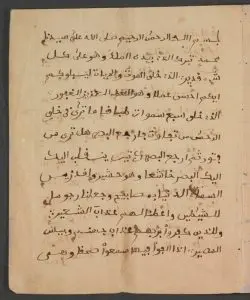 بسم الله الرحمن الرحيم صلى الله على سيدنا
محمد تبرك الذي بيده الملك وهو على كل
شيء قدير الذي خلق الموت والحيات ليبلوكم
ايكم احسن عملا وهو العزيز الغفور
الذي خلق سبع سموات طباقا ما ترى في خلق
الرحمن من تفاوت فارجع البصر هل ترى من
فطور ثم ارجع البصر كرتين ينقلب اليك
اليك البصر خاسئا وهو حسير ولقد زينا
السماء الدنيا بمصابيح وجعلنا رجوما
للشيطين واعتدنا لهم عذاب السعير
وللذين كفروا بربهم عذاب جهنم وبيس
المصير اذا القوا فيها سمعوا وهي